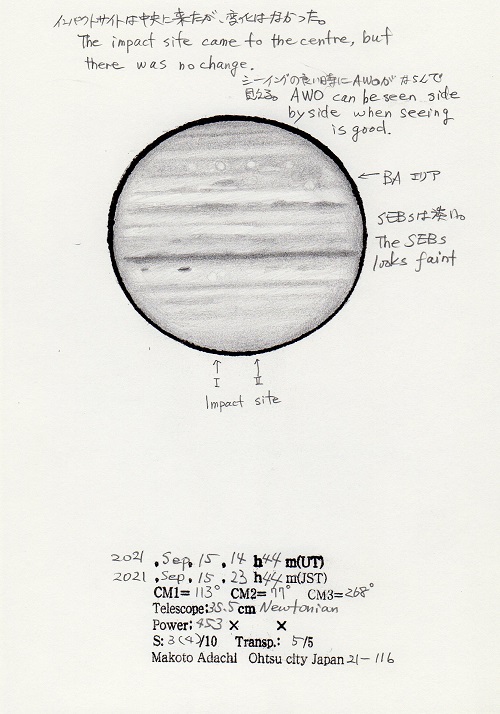 インパクトサイトは中央に来たが、変化はなかった。
The impact site came to the centre, but
there was no change.
シーイングの良い時にAWOがならんで
見える。 AWO can be seen side
by side when seeing
is good.
← BA エリア
SEBsは淡い。
The SEBs
looks faint
↑ ↑
I II
Impact site
2021 . Sep. 15 . 14 h 44 m(UT)
2021 . Sep. 15 . 23 h 44 m(JST)
CM1= 113° CM2= 77° CM3= 268°
Telescope: 35.5 cm Newtonian
Power: 453 × ×
S: 3(4)/10 Transp.: 5/5
Makoto Adachi Ohtsu city Japan 21-116